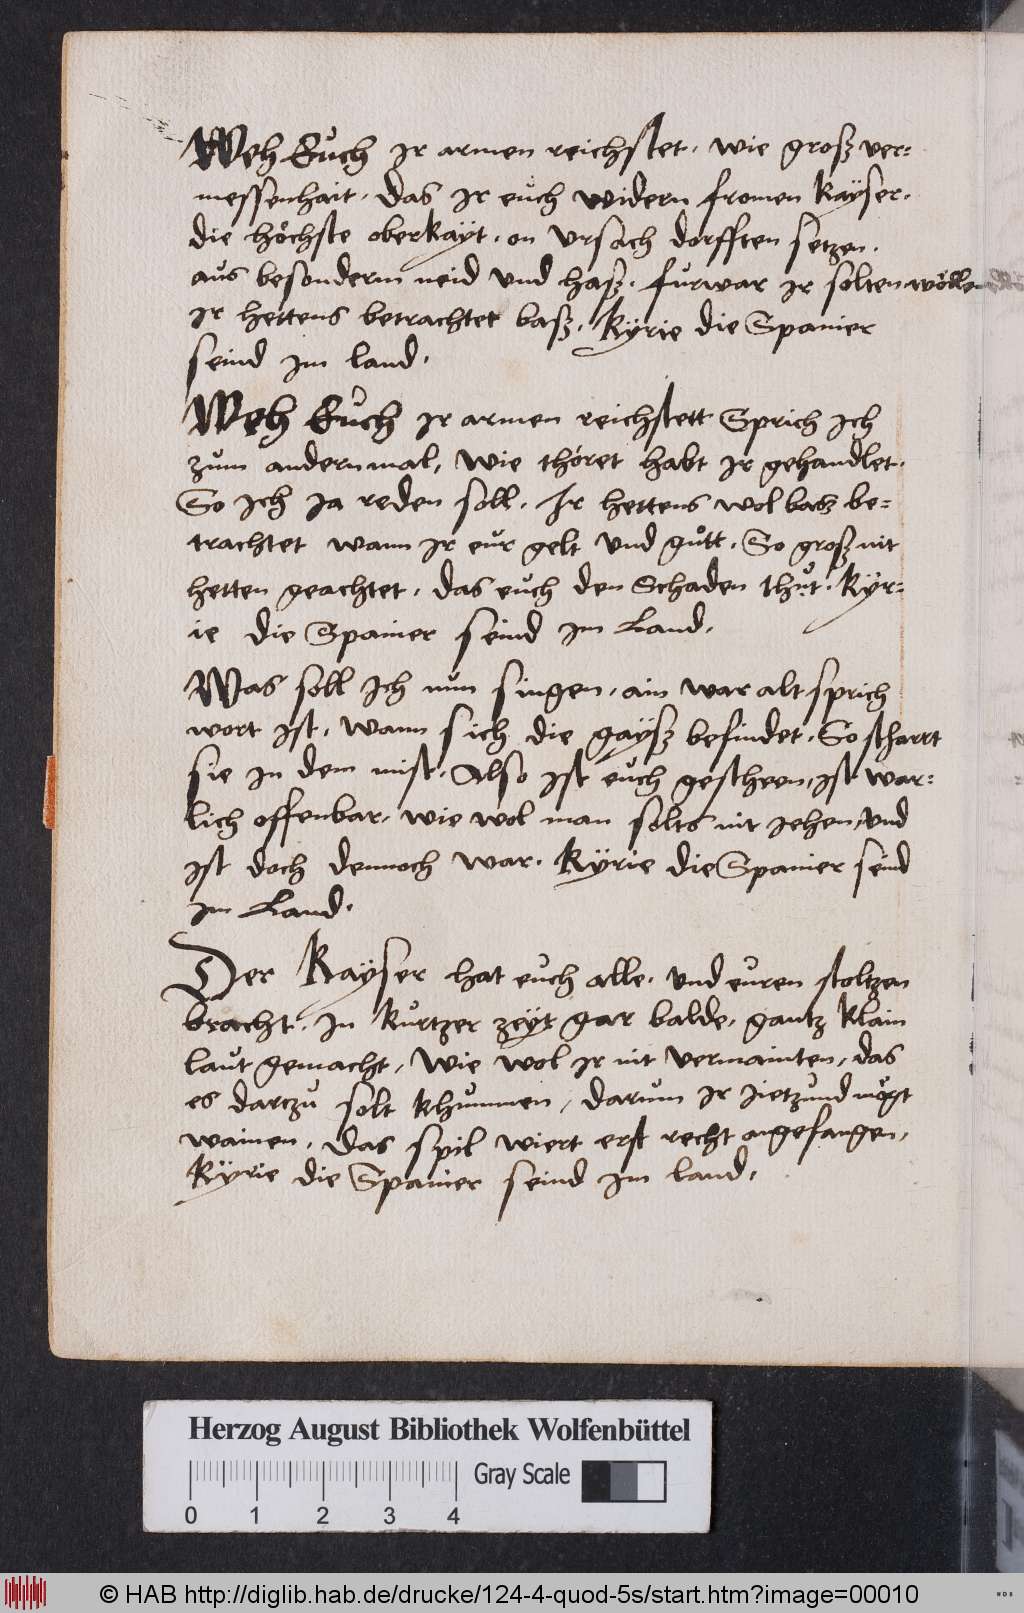 Weh Euch ir armen reichstet, wie groß ver=
messenhait, das Ir euch widern fromen Kaÿser,
die höchste oberkaÿt, on Ursach dorfften setzen,
aus besonderm neid und haß, furwar ir solten wölln
Ir hettens betrachtet baß, Kÿrie die Spanier
seind Im land,
Weh Euch Ir armen reichstett Sprich Ich
zum andernmal, wie thöret habt Ir gehandlet,
So Ich Ja reden soll, Ir hettens wol basz be=
trachtet wann Ir eur gelt und gütt, So groß nit
hetten geachtet, das euch den Schaden thut, Kÿr=
ie die Spanier seind Im Land,
Was soll Ich nun singen, ain war alt sprich
wort Ist, wann sich die gaÿß befindet, So scharrt
sie In dem mist, Also Ist euch gescheen, ist war=
lich offenbar, wie wol man solts nit Jehen, und
Ist doch dennoch war, Kÿrie die Spanier seind
Im Land,
Der Kaÿser hat euch alle, und euren stoltzen
bracht, In Kurtzer zeÿt gar balde, gantz klain
laut gemacht, Wie wol Ir nit vermainten, das
es darzu solt khummen, darum Ir Jietzund mögt
wainen, das spil wiert erst recht angefangen,
Kÿrie die Spanier seind Im land,
Herzog August Bibliothek Wolfenbüttel
Gray Scale
0 1 2 3 4
© HAB http://diglib.hab.de/drucke/124-4-quod-5s/start.htm?image=00010